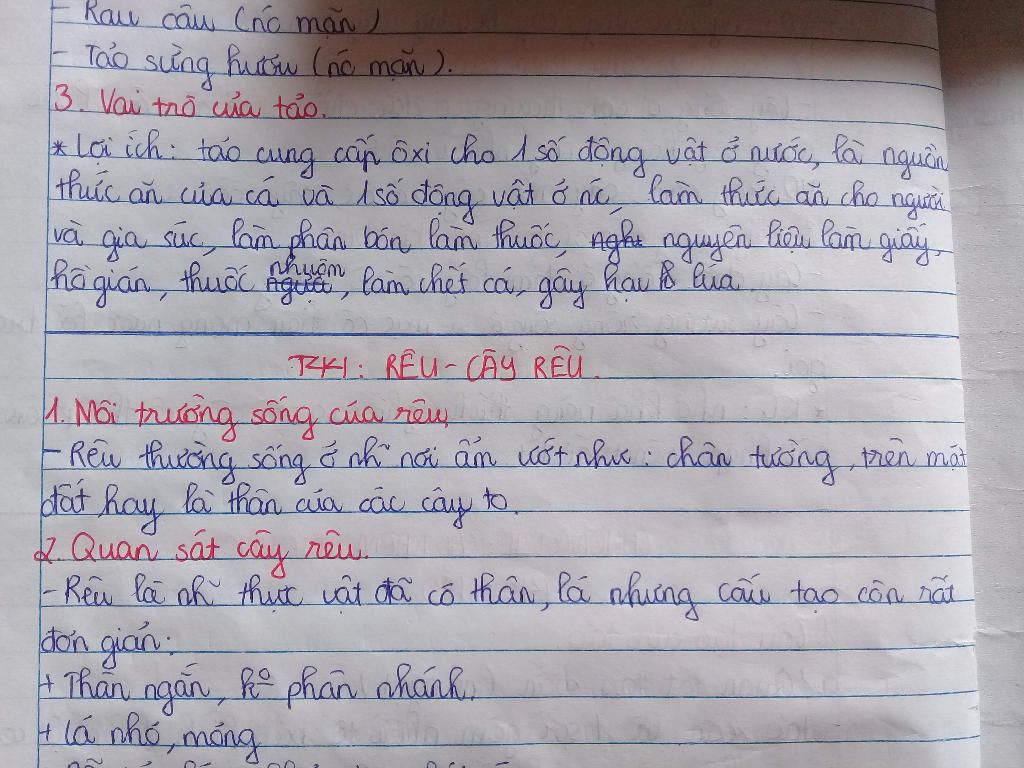 - Rau câu (nc mặn)
- Tảo sừng hươu (nc mặn).
3. Vai trò của tảo.
* Lợi ích: tảo cung cấp ôxi cho 1 số động vật ở nước, là nguồn
thức ăn của cá và 1 số động vật ở nc, làm thức ăn cho người
và gia súc, làm phân bón làm thuốc, nguyên liệu làm giấy,
hồ gián, thuốc nhuộm, làm chết cá, gây hại lúa.
: RÊU - CÂY RÊU.
1. Môi trường sống của rêu.
- Rêu thường sống ở nh~ nơi ẩm ướt như: chân tường, trên mặt
đất hay là thân của các cây to.
2. Quan sát cây rêu.
- Rêu là nh~ thực vật đã có thân, lá nhưng cấu tạo còn rất
đơn giản:
+ Thân ngắn, ko phân nhánh.
+ Lá nhỏ, mỏng